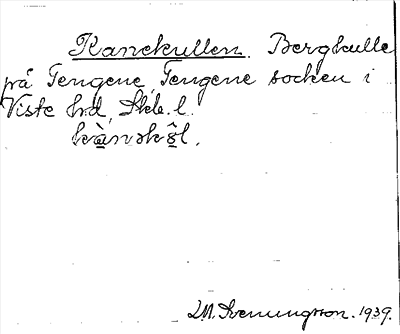 Kanekullen. Bergkulle
på Tengene, Tengene socken i
Viste hd, Skb. l.
kànskôl.
LM. Svenungsson. 1939.